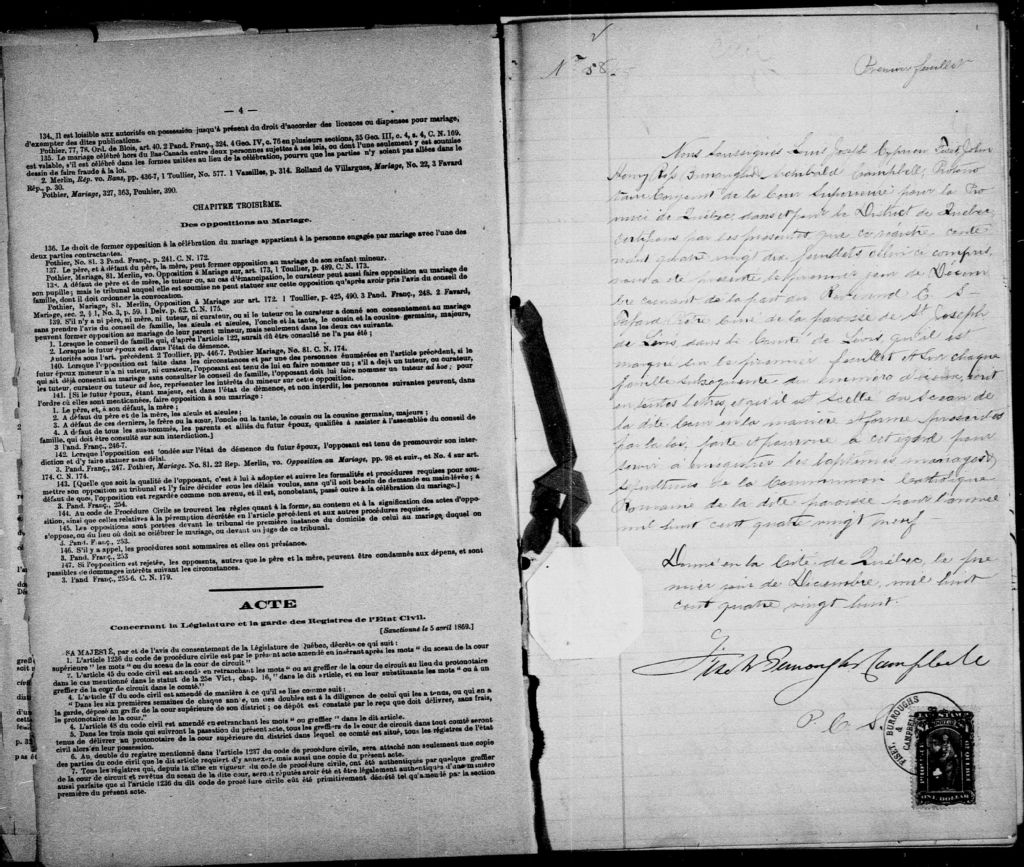 — 4 —
134. Il est loisible aux autorités en possession jusqu'à présent du droit d'accorder des licences ou dispenses pour mariage,
d'exempter des dites publications.
Pothier, 77, 78. Ord. de Blois, art. 40. 2 Pand. Franç., 324. 4 Geo. IV, c. 76 en plusieurs sections, 35 Geo. III, c. 4, s. 4, C. N. 169.
135. Le mariage célébré hors du Bas-Canada entre deux personnes sujettes à ses lois, ou dont l'une seulement y est soumise
est valable, s'il est célébré dans les formes usitées au lieu de la célébration, pourvu que les parties n'y soient pas allées dans le
dessein de faire fraude à la loi.
2. Merlin, Rép. vo. Bans, pp. 436-7, 1 Toullier, No. 577. 1 Vazeilles, p. 314. Rolland de Villargues, Mariage, No. 22, 3 Favard
Rép., p. 30.
Pothier, Mariage, 327, 363, Pouhier, 390.
CHAPITRE TROISIÈME.
Des oppositions au Mariage.
136. Le droit de former opposition à la célébration du mariage appartient à la personne engagée par mariage avec l'une des
deux parties contractantes.
Pothier, No. 81. 3 Pand. Franç., p. 241. C. N. 172.
137. Le père, et à défaut du père, la mère, peut former opposition au mariage de son enfant mineur.
Pothier, Mariage, 81. Merlin, vo. Opposition à Mariage sur, art. 173, 1 Toullier, p. 489. C. N. 173.
138. A défaut de père et de mère, le tuteur, ou, au cas d'émancipation, le curateur peut également faire opposition au mariage de
son pupille; mais le tribunal auquel elle est soumise ne peut statuer sur cette opposition qu'après avoir pris l'avis du conseil de
famille, dont il doit ordonner la convocation.
Pothier, Mariage, 81. Merlin, Opposition à Mariage sur art. 172. 1 Toullier, p. 425, 490. 3 Pand. Franç., 248. 2 Favard,
Mariage, sec. 2, § 1, No. 3, p. 59. 1 Delv. p. 62. C. N. 175.
139. S'il n'y a ni père, ni mère, ni tuteur, ni curateur, ou si le tuteur ou le curateur a donné son consentement au mariage
sans prendre l'avis du conseil de famille, les aïeuls et aïeules, l'oncle et la tante, le cousin et la cousine germains, majeurs,
peuvent former opposition au mariage de leur parent mineur, mais seulement dans les deux cas suivants.
1. Lorsque le conseil de famille qui, d'après l'article 122, aurait dû être consulté ne l'a pas été;
2. Lorsque le futur époux est dans l'état de démence.
Autorités sous l'art. précédent 2 Toullier, pp. 446-7. Pothier Mariage, No. 81. C. N. 174.
140. Lorsque l'opposition est faite dans les circonstances et par une des personnes énumérées en l'article précédent, si le
futur époux mineur n'a ni tuteur, ni curateur, l'opposant est tenu de lui en faire nommer un; s'il a déjà un tuteur, ou curateur,
qui ait déjà consenti au mariage sans consulter le conseil de famille, l'opposant doit lui faire nommer un tuteur ad hoc; pour
les tuteur, curateur ou tuteur ad hoc, représenter les intérêts du mineur sur cette opposition.
141. [Si le futur époux, étant majeur, est dans l'état de démence, et non interdit, les personnes suivantes peuvent, dans
l'ordre où elles sont mentionnées, faire opposition à son mariage:
1. Le père, et, à son défaut, la mère;
2. A défaut du père et de la mère, les aïeuls et aïeules;
3. A défaut de ces derniers, le frère ou la sœur, l'oncle ou la tante, le cousin ou la cousine germains, majeurs;
4. A défaut de tous les sus-nommés, les parents et alliés du futur époux, qualifiés à assister à l'assemblée du conseil de
famille, qui doit être consulté sur son interdiction.]
3 Pand. Franç., 246-7.
142. Lorsque l'opposition est fondée sur l'état de démence du futur époux, l'opposant est tenu de promouvoir son inter-
diction et d'y faire statuer sans délai.
3. Pand. Franç., 247. Pothier, Mariage. No. 81. 22 Rep. Merlin, vo. Opposition au Mariage, pp. 98 et suiv., et No. 4 sur art.
174. C. N. 174.
143. [Quelle que soit la qualité de l'opposant, c'est à lui à adopter et suivre les formalités et procédures requises pour sou-
mettre son opposition au tribunal et l'y faire décider sous les délais voulus, sans qu'il soit besoin de demande en main-levée; à
défaut de quoi, l'opposition est regardée comme non avenue, et il est, nonobstant, passé outre à la célébration du mariage.]
3. Pand. Franç., 254.
144. Au code de Procédure Civile se trouvent les règles quant à la forme, au contenu et à la signification des actes d'oppo-
sition, ainsi que celles relatives à la péremption décrétée en l'article précédent et aux autres procédures requises.
145. Les oppositions sont portées devant le tribunal de première instance du domicile de celui au mariage, duquel on
s'oppose, ou du lieu où doit se célébrer le mariage, ou devant un juge de ce tribunal.
3. Pand. Franç., 253.
146. S'il y a appel, les procédures sont sommaires et elles ont préséance.
3. Pand. Franç., 253
147. Si l'opposition est rejetée, les opposants, autres que le père et la mère, peuvent être condamnés aux dépens, et sont
passibles de dommages intérêts suivant les circonstances.
3. Pand. Franç., 255-6. C. N. 179.
ACTE
Concernant la Législature et la garde des Registres de l'Etat Civil.
[Sanctionné le 5 avril 1869.]
SA MAJESTÉ, par et de l'avis du consentement de la Législature de Québec, décrète ce qui suit:
1. L'article 1236 du code de procédure civile est par le présent acte amendé en insérant après les mots "du sceau de la cour
supérieure" les mots "ou du sceau de la cour de circuit"
2. L'article 45 du code civil est amendé en retranchant les mots "ou au greffier de la cour de circuit ou lieu du protonotaire
dans le cas mentionné dans le statut de la 25e Vict., chap. 16," dans le dit article, et en leur substituant les mots "ou à un
greffier de la cour de circuit dans le comté."
4. L'article 47 du code civil est amendé de manière à ce qu'il se lise comme suit:
"Dans les six premières semaines de chaque année, un des doubles est à la diligence de celui qui les a tenus, ou qui en a
la garde, déposé au greffe de la cour supérieure de son district; ce dépôt est constaté par le reçu que doit délivrer, sans frais,
le protonotaire de la cour."
4. L'article 48 du code civil est amendé en retranchant les mots "ou greffier" dans le dit article.
5. Dans les trois mois qui suivront la passation du présent acte, tous les greffiers de la cour de circuit dans tout comté seront
tenus de délivrer au protonotaire de la cour supérieure du district dans lequel ce comté est situé, tous les registres de l'état
civil alors en leur possession.
6. Au double du registre mentionné dans l'article 1237 du code de procédure civile, sera attaché non seulement une copie
des parties du code civil que le dit article requiert d'y annexer, mais aussi une copie du présent acte.
7. Tous les registres qui, depuis la mise en vigueur du code de procédure civile, ont été authentiqués par quelque greffier
de la cour de circuit et revêtus du sceau de la dite cour, seront réputés avoir été et être légalement authentiqués d'une manière
aussi parfaite que si l'article 1236 du dit code de procédure civile eût été primitivement décrété tel qu'amendé par la section
première du présent acte.
Premier feuillet
Nous Soussignés Louis Joseph Cyprien Fiset, John
Henry Ross Burroughs, Archibald Campbell, Protono-
taire Conjoint de la Cour Supérieure pour la Pro-
vince de Québec, dans et pour le District de Québec,
certifions par les présentes que ce registre conte-
nant quatre vingt dix feuillets celui-ci compris,
nous a été présenté le premier jour de Décem-
bre courant de la part du Révérend E. S.
Fafard Ptre Curé de la paroisse de St Joseph
de Lévis dans le Comté de Lévis, qu'il est
marqué sur le premier feuillet et sur chaque
feuillet subséquent du numéro d'icelui, écrit
en toutes lettres, et qu'il est scellé du Sceau de
la dite Cour en la manière et forme prescrites
par la loi, forte et pourvue à cet égard pour
servir à enregistrer des baptêmes mariages et
sépultures de la Communion Catholique
Romaine de la dite paroisse pour l'année
mil huit cent quatre vingt neuf
Donné en la Cité de Québec, le pre
mier jour de Décembre, mil huit
cent quatre vingt huit.
Fiset Burroughs Campbell
P. C. S.
FISET, BURROUGHS & CAMPBELL
ONE DOLLAR